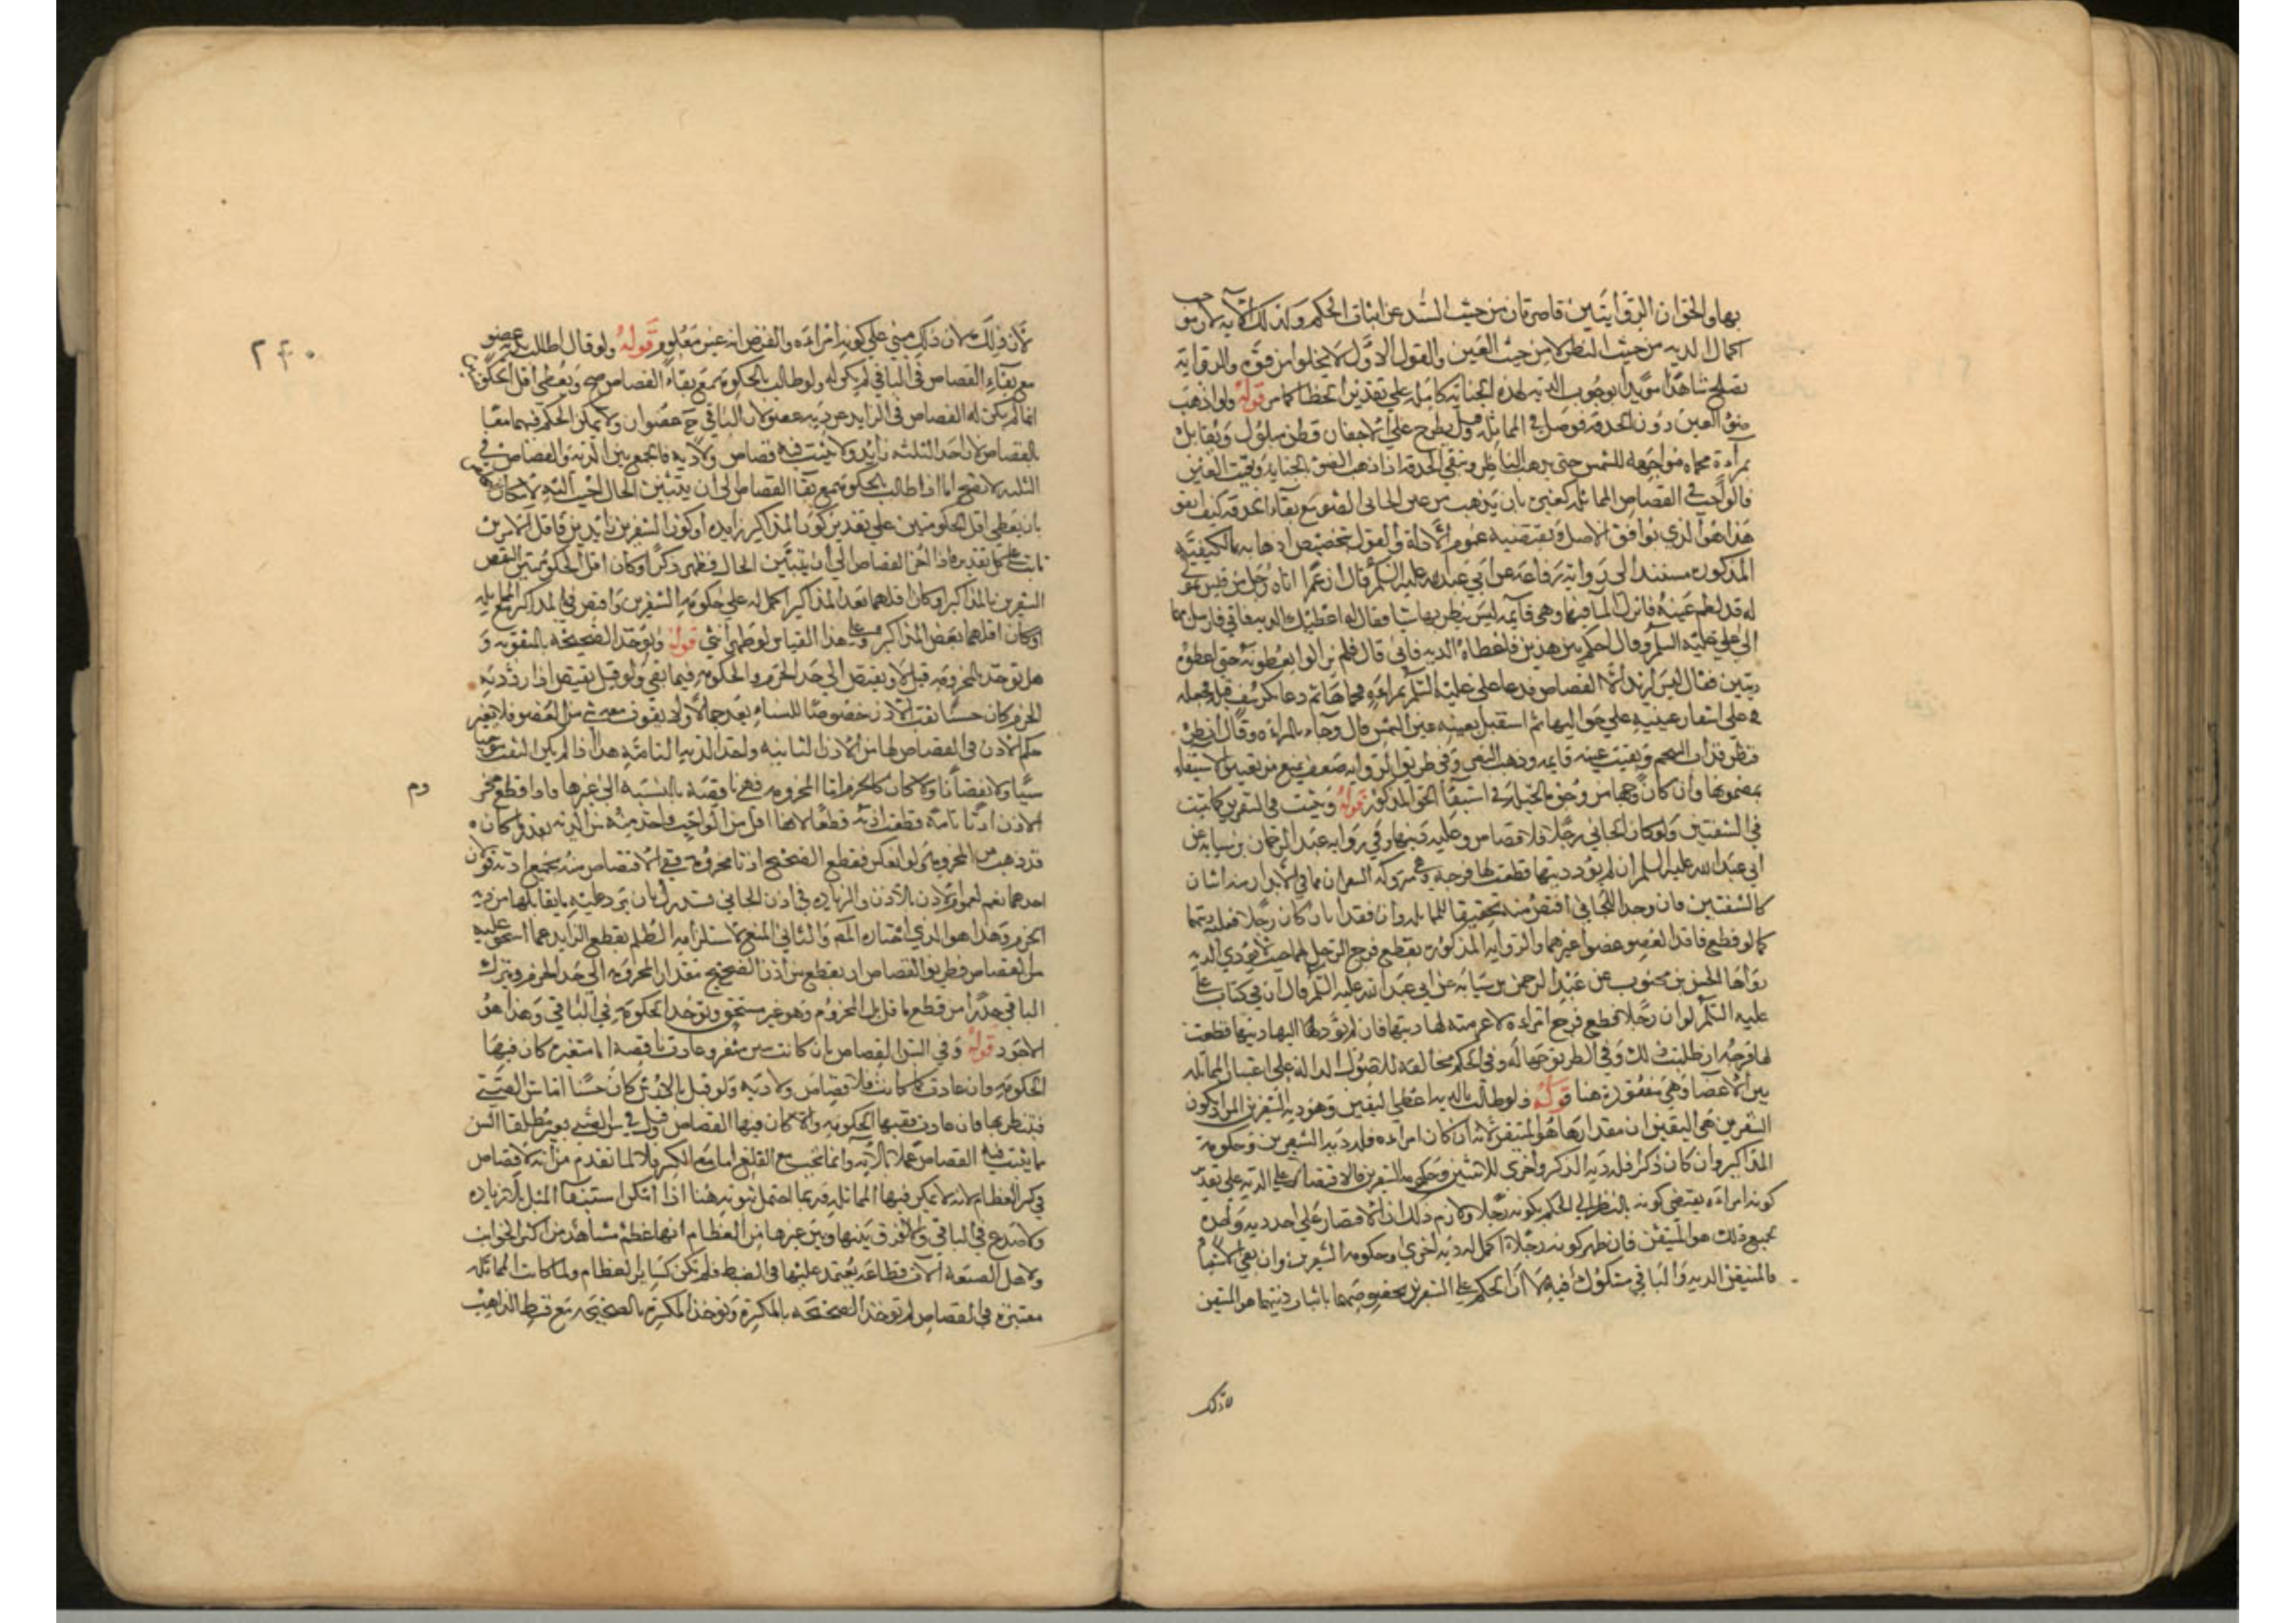 بها والحق ان الروايتين قاصرتان من حيث السند عن اثبات الحكم وكذلك الآية لا توجب
اكمال الدية من حيث النظر لا من حيث العين والقول الاول لا يخلوا من قوة والرواية
تصلح شاهدا مؤيدا بوجوب الدية لهذه الجناية كاملة على تقدير الخطا كما مر قوله ولو اذهب
ضوء العين دون الحدقة توصل في المماثلة وقيل يطرح على الاجفان قطن مبلول ويقابل
بمرآة محماة مواجهة للشمس حتى يذهب الناظر وتبقى الحدقة اذا ذهب الضوء بالجناية وبقيت العين
فالواجب في القصاص المماثلة كغيره بان يذهب من عين الجاني الضوء مع بقاء الحدقة كيف اتفق
هذا هو الذي يوافق الاصل وتقتضيه عموم الادلة والقول بتخصيص اذهابه بالكيفية
المذكورة مستند الى رواية رفاعة عن ابي عبد الله عليه السلم قال ان عمر اتاه رجل من قيس بمولى
له قد لطم عينه فانزل الماء فيها وهي قايمة ليس يبصر بها شيا فقال له اعطيك الدية فابى فارسل بهما
الى علي عليه السلم وقال احكم بين هذين فاعطاه الدية فابى قال فلم يزالوا يعطونه حتى اعطوه
ديتين فقال ليس اريد الا القصاص فدعا علي عليه السلم بمرآة فحماها ثم دعا بكرسف فبله فجعله
على اشفار عينيه على حواليها ثم استقبل بعينه عين الشمس قال وجاء بالمرآة وقال انظر
فنظر فذاب الشحم وبقيت عينه قايمة وذهب البصر وفي طريق الرواية ضعف يمنع من تعيين الاستيفاء
بمضمونها وان كان وجها من وجوه الحيلة في استيفاء الحق المذكور قوله ويثبت في الشفرين كما يثبت
في الشفتين ولو كان الجاني رجلا فلا قصاص وعليه ديتها وفي رواية عبد الرحمان بن سيابة عن
ابي عبد الله عليه السلم ان لم يؤد ديتها قطعت لها فرجه وهي متروكة الشفران هما في الابدان
كالشفتين فان وجدا للجاني اقتص منه تحقيقا للمماثلة وان فقدا بان كان رجلا فعليه ديتهما
كما لو قطع فاقد العضو عضوا غيرهما والرواية المذكورة بقطع فرج الرجل لها حيث لا يؤدي الدية
رواها الحسن بن محبوب عن عبد الرحمن بن سيابة عن ابي عبد الله عليه السلم قال ان في كتاب علي
عليه السلم لو ان رجلا قطع فرج امراءة لاغرمته لها ديتها فان لم يؤد اليها ديتها قطعت
لها فرجه ان طلبت ذلك وفي الطريق جهالة وفي الحكم مخالفة للاصول الدالة على اعتبار المماثلة
بين الاعضا وهي مفقودة هنا قوله فلو طالب بالدية اعطي اليقين وهو دية الشفرين المراد بكون
الشفرين هي اليقين ان مقدارها هو المتيقن لانه ان كان امراءه فله دية الشفرين وحكومة
المذاكير وان كان ذكرا فله دية الذكر واخرى للانثيين وحكومة الشفرين فالاقتصار على الدية على تقدير
كونه امراءه يقتضي كونه بالنظر الى الحكم بكونه رجلا ولازم ذلك ان الاقتصار على احد دية واحدة
بجميع ذلك هو المتيقن فان ظهر كونه رجلا اكمل له دية اخرى وحكومة الشفرين وان بقي الاشتباه
فالمتيقن الدية والباقي مشكوك فيه الا ان الحكم على الشفرين بخصوصهما باثبات ديتهما هو المتيقن
لا ذلك
لان ذلك مبني على كونه امراءه والفرض انه غير معلوم قوله ولو قال اطالب بدية عضو
مع بقاء القصاص في الباقي لم يكن له ولو طالب بالحكومة مع بقاء القصاص صح ويعطى اقل الحكومتين
انما لم يكن له القصاص في الزايد عن دية عضو لان الباقي ح عضوان ولا يمكن الحكم فيهما معا
بالقصاص لان احد الثلثة زايد ولا يثبت فيه قصاص ولا دية فالجمع بين الدية والقصاص في
الثلثة لا يصح اما اذا طالب بالحكومة مع بقاء القصاص الى ان يتبين الحال اجيب اليه لامكان
بان يعطى اقل الحكومتين على تقدير كون المذاكير زايدة او كون الشفرين زايدين فاقل الامرين
ثابت على كل تقدير فاذا اخر القصاص الى ان يتبين الحال فظهر ذكرا وكان اقل الحكومتين
الشفرين بالمذاكير وكان اقلهما بعد المذاكير اكمل له على حكومة الشفرين واقتص في المذاكير
او كان اقلهما بعض المذاكير وعلى هذا القياس لو ظهر انثى قوله وتؤخذ الصحيحة بالمثقوبة و
هل تؤخذ بالمخرومة قيل لا ويقتص الى حد الخرم والحكومة فيما بقي ولو قيل يقتص اذا رد دية
الخرم كان حسنا ثقب الاذن خصوصا للنساء يعد جمالا ولا يفوت معه شي من العضو فلا يغير
حكم الاذن في القصاص لها من الاذن الثانية واخذ الدية التامة هذا اذا لم يكن الثقب
شينا ولا نقصانا والا كان كالخرم اما المخرومة فهي ناقصة بالنسبة الى غيرها فاذا قطع مخر
وم
الاذن اذنا تامة قطعت اذنه قطعا لانها اقل من الواجب واخذ منه من الدية بقدر ما كان
قد ذهب من المخروم ولو انعكس فقطع الصحيح اذنا مخرومة ففي الاقتصاص منه بجميع اذنه قولان
احدهما نعم لعموم الاذن بالاذن والزيادة في اذن الجاني تستدرك بان يرد عليه ما يقابلها من دية
الخرم وهذا هو الذي اختاره المصه والثاني المنع لاستلزامه الظلم بقطع الزايد عما استحق عليه
من القصاص فطريق القصاص ان يقطع من اذن الصحيح مقدار المخرومة الى حد الخرم ويترك
الباقي حذرا من قطع ما قابل المخروم وهو غير مستحق ويؤخذ الحكومة في الباقي وهذا هو
الاجود قوله وفي السن القصاص فان كانت سن مثغر وعادت ناقصة او متغيرة كان فيها
الحكومة وان عادت كما كانت فلا قصاص ولا دية ولو قيل بالارش كان حسنا اما سن الصبي
فينتظر بها فان عادت ففيها الحكومة والا كان فيها القصاص وقيل في سن الصبي بعير مطلقا السن
مما يثبت فيه القصاص عملا بالآية وانما يجب مع القلع اما مع الكسر فلا لما تقدم من انه لا قصاص
في كسر العظام لانه لا يمكن فيها المماثلة وربما احتمل ثبوته هنا اذا امكن استيفاء المثل بلا زيادة
ولا صدع في الباقي والفرق بينها وبين غيرها من العظام انها عظم مشاهد من اكثر الجوانب
ولاهل الصنعة آلات قطاعة يعتمد عليها في الضبط فلم تكن كساير العظام ولما كانت المماثلة
معتبرة في القصاص لم تؤخذ الصحيحة بالمكسرة وتؤخذ المكسرة بالصحيحة مع قسط الذاهب